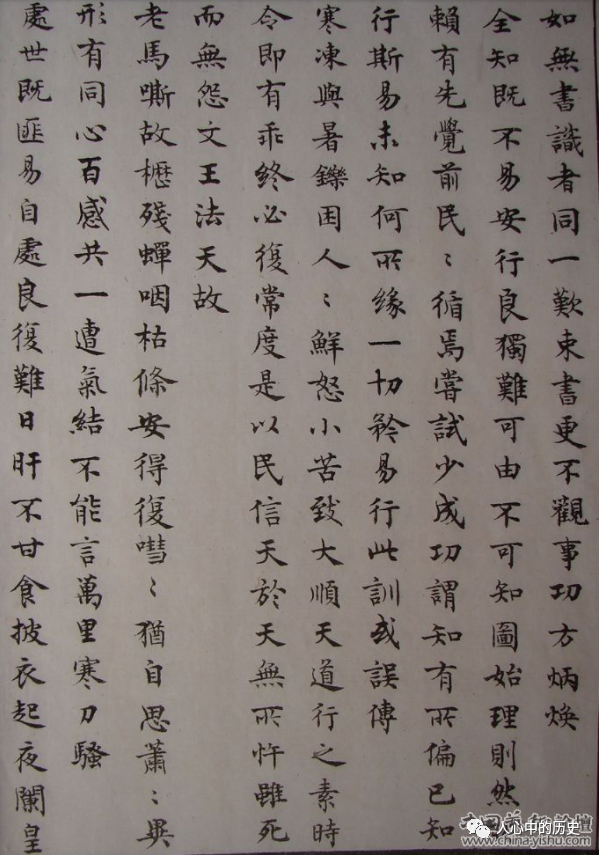 如無書識者同一歎束書更不觀事功方炳煥
全知既不易安行良獨難可由不可知圖始理則然
賴有先覺前民〻循焉嘗試少成功謂知有所偏已知
行斯易未知何所緣一切矜易行此訓或誤傳
寒凍與暑鑠困人〻鮮怒小苦致大順天道行之素時
令即有乖終必復常度是以民信天於天無所忤雖死
而無怨文王法天故
老馬嘶故櫪殘蟬咽枯條安得復嘒〻猶自思蕭〻異
形有同心百感共一遭氣結不能言萬里寒刀騷
處世既匪易自處良復難日旰不甘食披衣起夜闌皇
人心中的历史
www.chinayishu.com